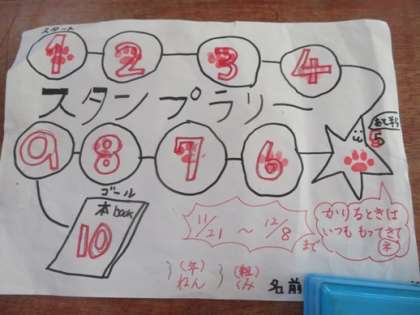 スタート
1 2 3 4
スタンプラリー
5
9 8 7 6
ゴール
本 book
10
11/21 ～ 12/8 まで
かりるときは
いつももってきて
ネ
(年) (組)
ねん くみ
名前